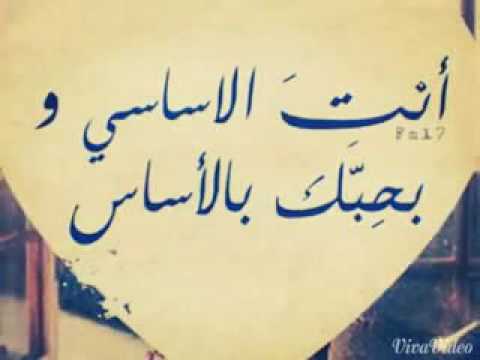 أنْتَ الاساسي و
Fn17
بحِبَّكَ بالأساس
VivaVideo